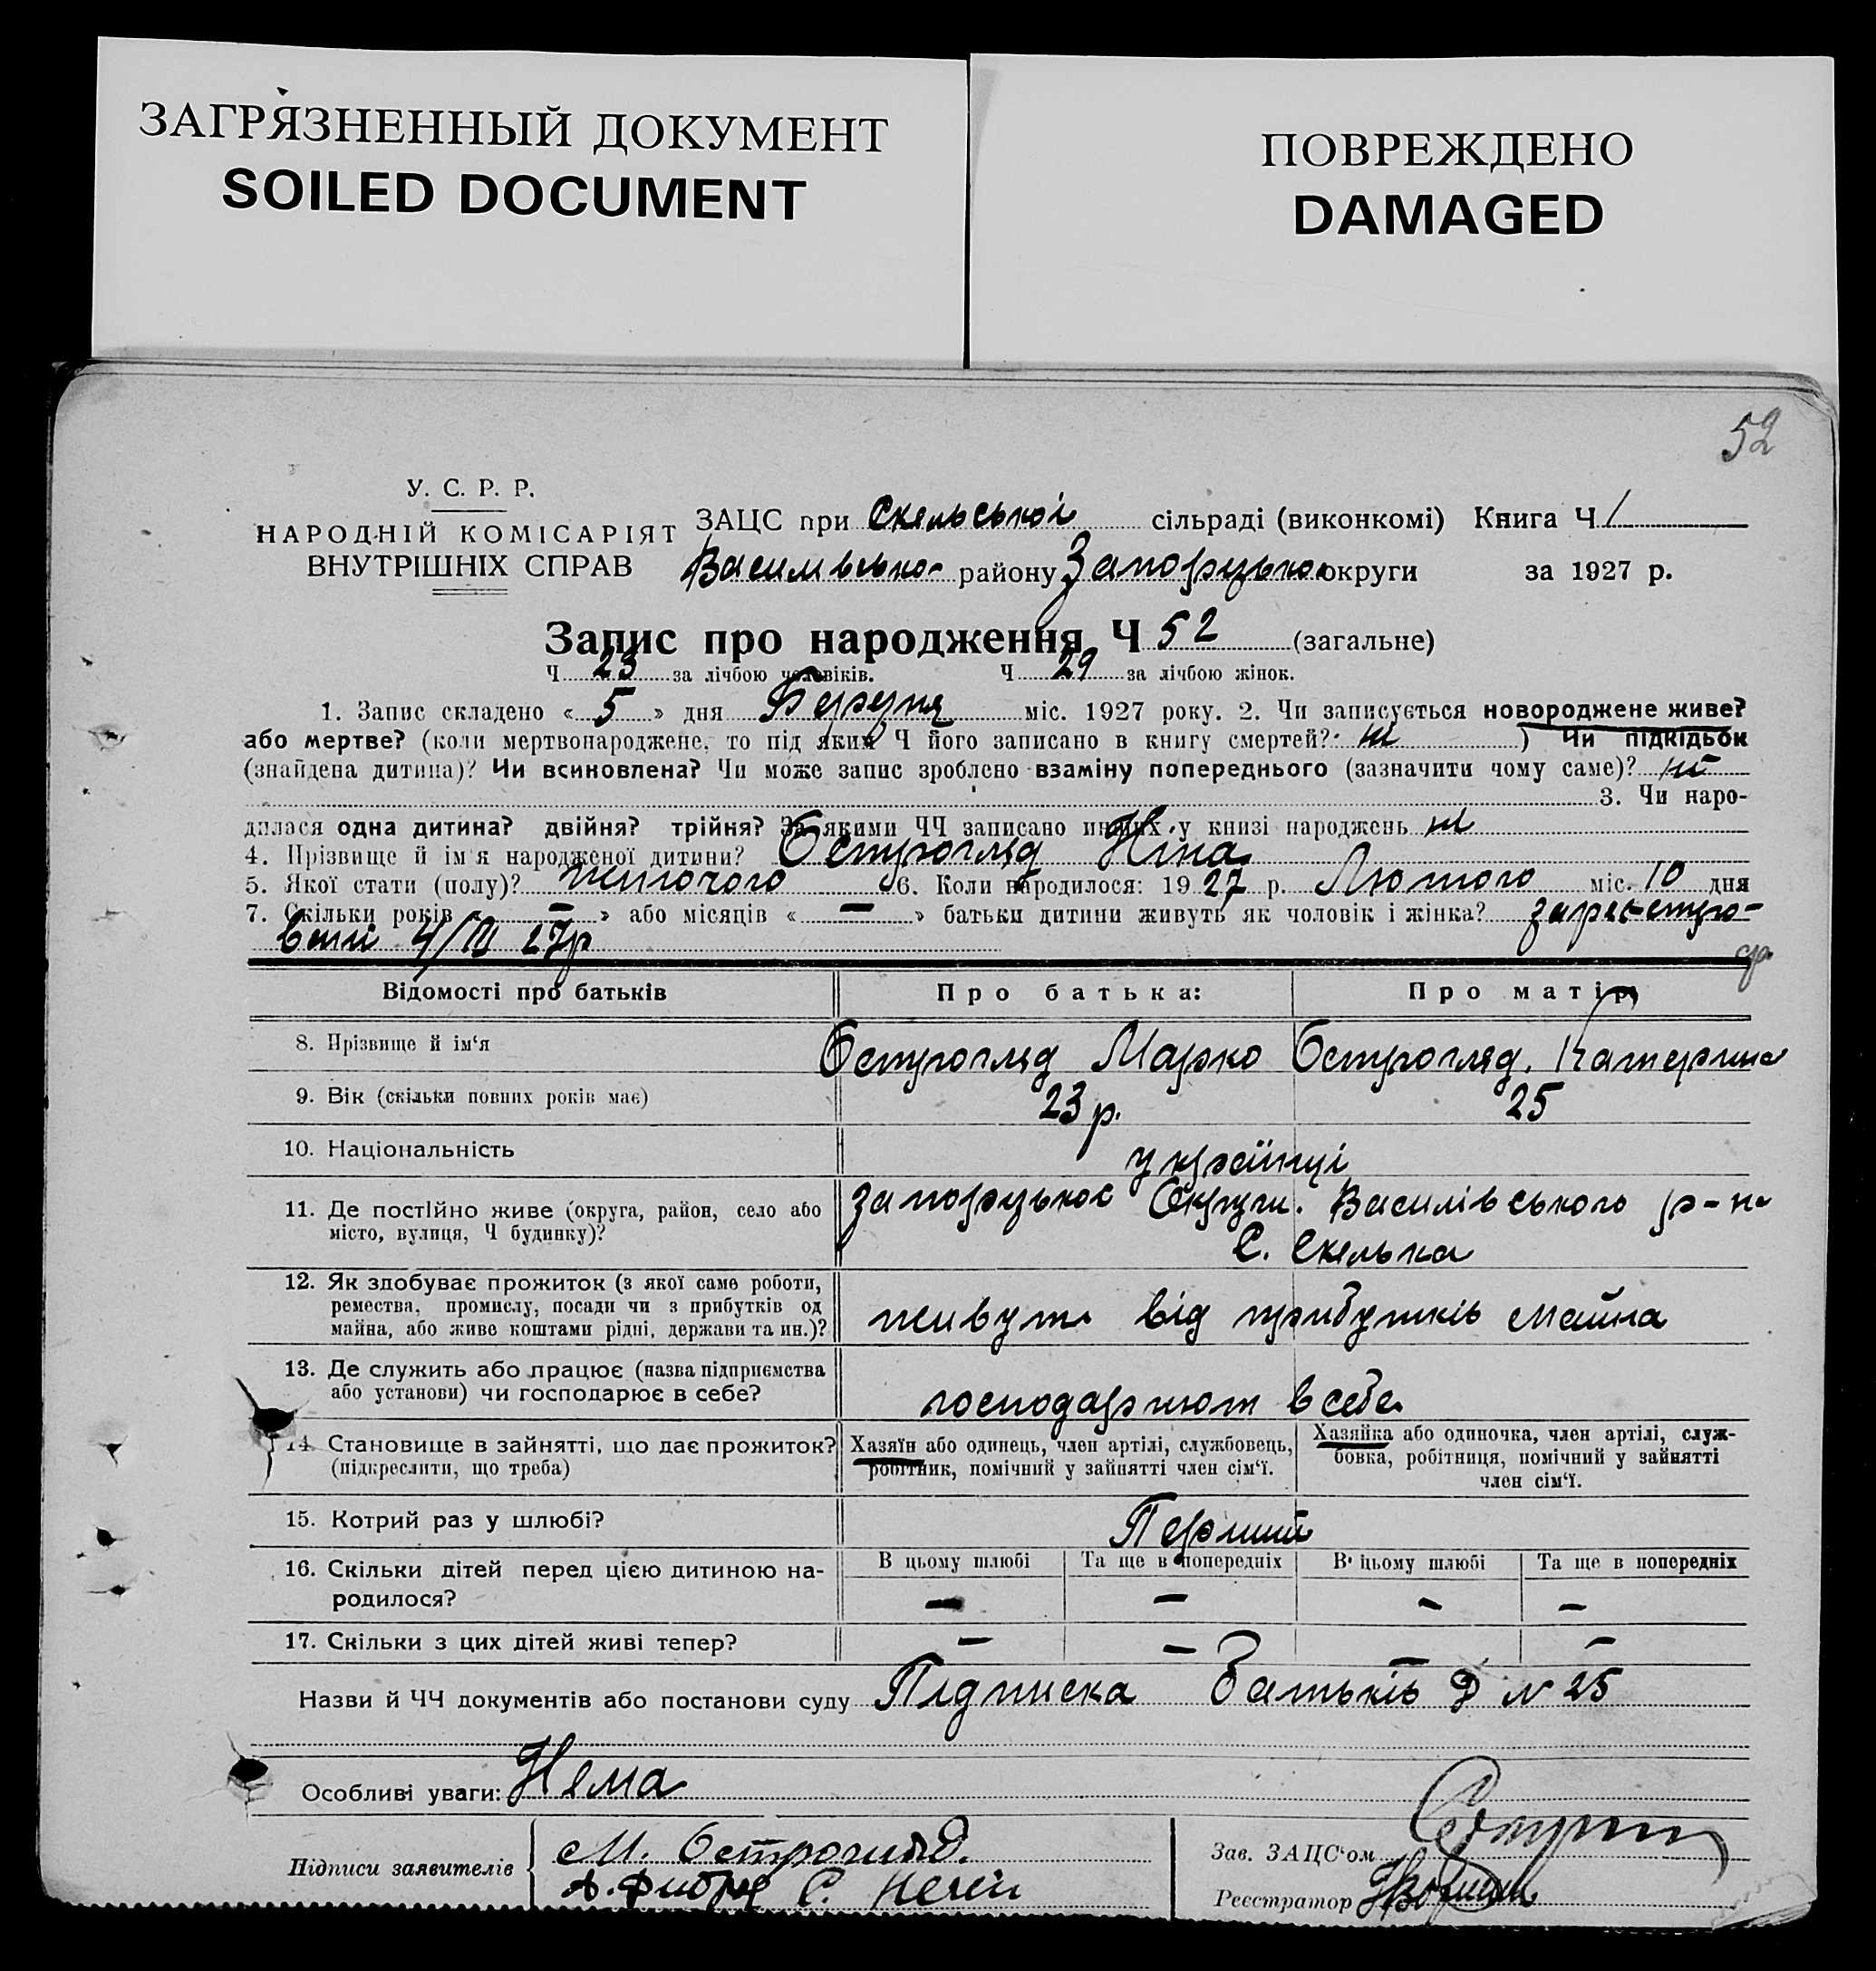 ЗАГРЯЗНЕННЫЙ ДОКУМЕНТ
SOILED DOCUMENT
ПОВРЕЖДЕНО
DAMAGED
52
У. С. Р. Р.
НАРОДНІЙ КОМІСАРІЯТ
ВНУТРІШНІХ СПРАВ
ЗАЦС при Скельській сільраді (виконкомі) Книга Ч 1
Василівсько- району Запорузької округи за 1927 р.
Запис про народження Ч 52 (загальне)
Ч 23 за лічбою чоловіків. Ч 29 за лічбою жінок.
1. Запис складено « 5 » дня Березня міс. 1927 року. 2. Чи записується новороджене живе?
або мертве? (коли мертвонароджене, то під яким Ч його записано в книгу смертей? ні ) Чи підкідьок
(знайдена дитина)? Чи всиновлена? Чи може запис зроблено взаміну попереднього (зазначити чому саме)? ні
3. Чи наро-
дилася одна дитина? двійня? трійня? За якими ЧЧ записано инших у книзі народжень ні
4. Прізвище й ім'я народженої дитини? Остропляд Ніна
5. Якої статі (полу)? жиночого 6. Коли народилося: 1927 р. Лютого міс. 10 дня
7. Скільки років « — » або місяців « — » батьки дитини живуть як чоловік і жінка? зареєстро-
вані 4/III 27р
Відомості про батьків Про батька: Про матір
8. Прізвище й ім'я Остропляд Марко Остропляд. Катерина
9. Вік (скільки повних років має) 23 р. 25
10. Національність українці
11. Де постійно живе (округа, район, село або
місто, вулиця, Ч будинку)?
Запорузької Округи. Василівського р-на
С. Скелька
12. Як здобуває прожиток (з якої саме роботи,
ремества, промислу, посади чи з прибутків од
майна, або живе коштами рідні, держави та ин.)?
живуть від прибутків майна
13. Де служить або працює (назва підприємства
або установи) чи господарює в себе?
господарюют в себе
14. Становище в зайнятті, що дає прожиток?
(підкреслити, що треба)
Хазяїн або одинець, член артілі, службовець,
робітник, помічний у зайнятті член сім'ї.
Хазяйка або одиночка, член артілі, служ-
бовка, робітниця, помічний у зайнятті
член сім'ї.
15. Котрий раз у шлюбі? Перший
16. Скільки дітей перед цією дитиною на-
родилося?
В цьому шлюбі Та ще в попередніх В цьому шлюбі Та ще в попередніх
— — — —
17. Скільки з цих дітей живі тепер? — — — —
Назви й ЧЧ документів або постанови суду Підписка батьків Д № 25
Особливі уваги: Нема
Підписи заявителів
М.Острогляд.
С. Нечей
Зав. ЗАЦС'ом
Реєстратор